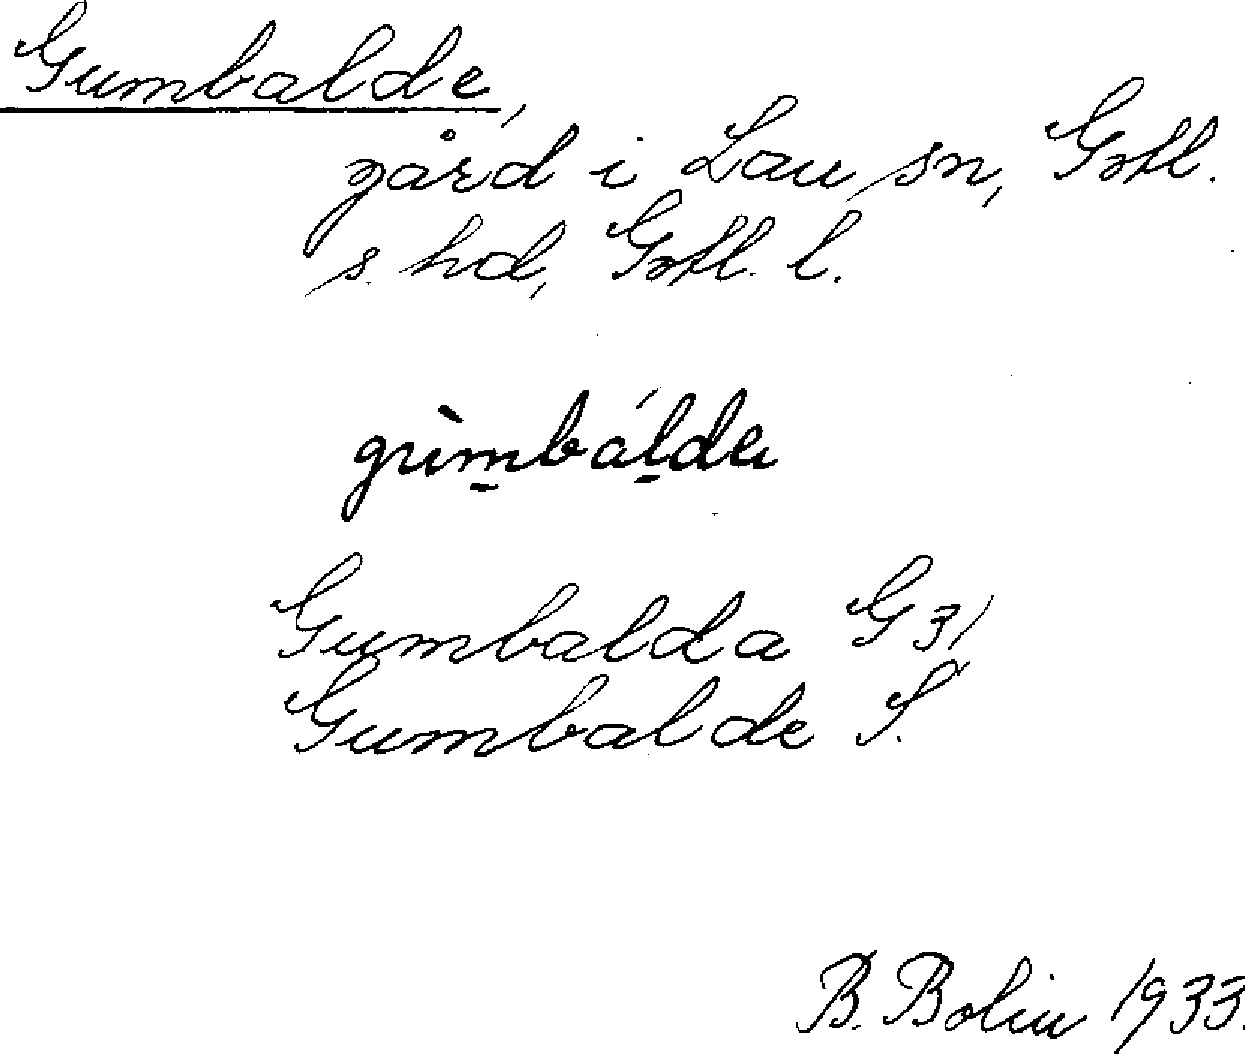 Gumbalde,
gård i Lau sn, Gotl.
s. hd, Gotl. l.
gùmbálda
Gumbalda G 31
Gumbalde S.
B. Bolin 1933.